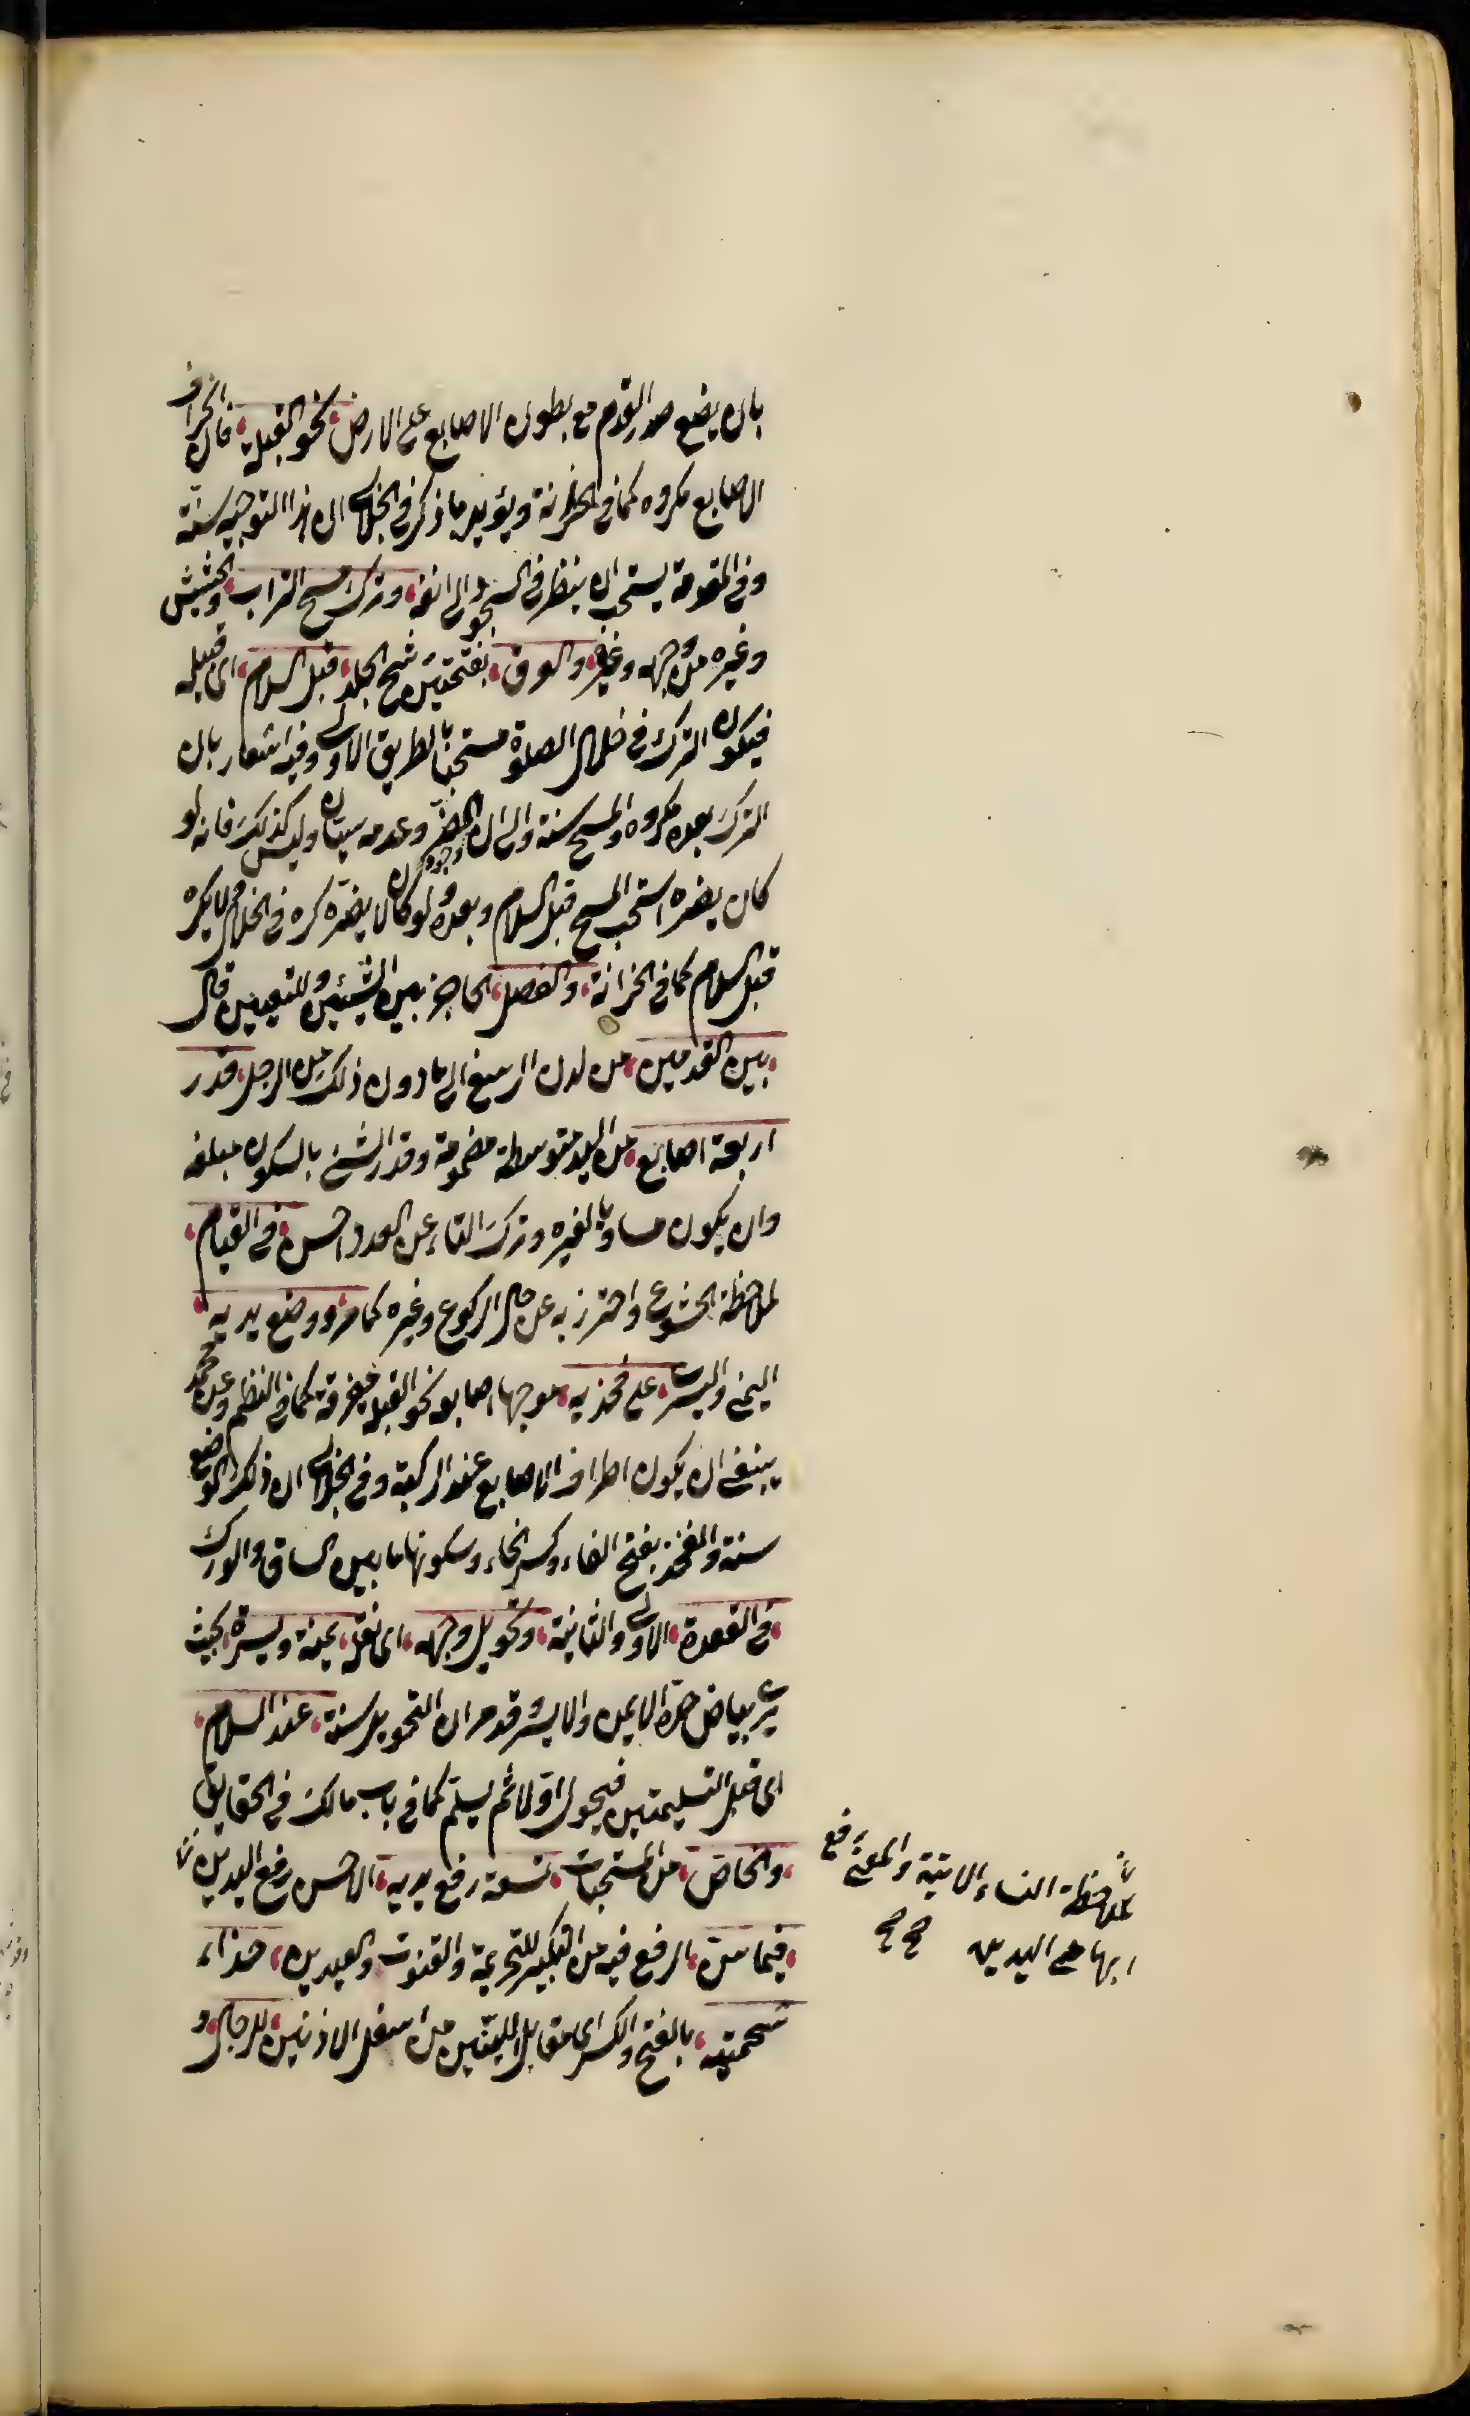 بان يضع صدر القدم مع بطون الاصابع على الارض نحو القبلة فان انحراف
الاصابع مكروه كما في الخزانة ويؤيد ما ذكر في الجلابى ان هذا التوجيه سنة
وفي المقدمة يستحب ان ينظر في السجود الى انفه وترك مسح التراب والحشيش
وغيره من وجهه وغيره والعرق بفتحتين رشح الجلد قبل السلام اى قبيله
فيكون الترك في خلال الصلوة مستحبا بالطريق الاولى وفيه اشعار بان
الترك بعده مكروه والمسح سنة والى ان وجود الضرر وعدمه سيان وليس كذلك فانه لو
كان يضره استحب المسح قبل السلام وبعده ولو كان لا يضره كره في الخلال ولا يكره
قبل السلام كما في الخزانة والفصل الحاجز بين الشيئين وللتعيين قال
بين القدمين من لدن الرسغ الى ما دون ذلك من الرجل قدر
اربعة اصابع من اليد متوسطة مضمومة وقدر الشئ بالسكون مبلغه
وان يكون مساويا لغيره وترك التاء عن العدد احسن في القيام
لملاحظة الخشوع واحترز به عن حال الركوع وغيره كما مر ووضع يديه
اليمنى واليسرى على فخذيه موجها اصابعه نحو القبلة متفرقة كما في النظم وعن محمد
ينبغي ان يكون اطراف الاصابع عند الركبة وفي الجلابى ان ذلك الوضع
سنة والفخذ بفتح الفاء وكسر الخاء وسكونها ما بين الساق والورك
في القعدة الاولى والثانية وتحويل وجهه اى نقله يمنة ويسرة بحيث
يرى بياض خده الايمن والايسر وقد مر ان التحويل سنة عند السلام
اى قبل التسليمتين فيحول اولا ثم يسلم كما في باب مالك في الحقايق
والخاص من المستحبات تسعة رفع يديه الاحسن رفع اليدين
فيما سن الرفع فيه من التكبير للتحريمة والقنوت والعيدين حذاء
شحمتيه بالفتح والكسر اى مقابل اللينتين من اسفل الاذنين للرجال و
لملاحظة النساء الاتية والمعنى رفع
ابهامى اليدين